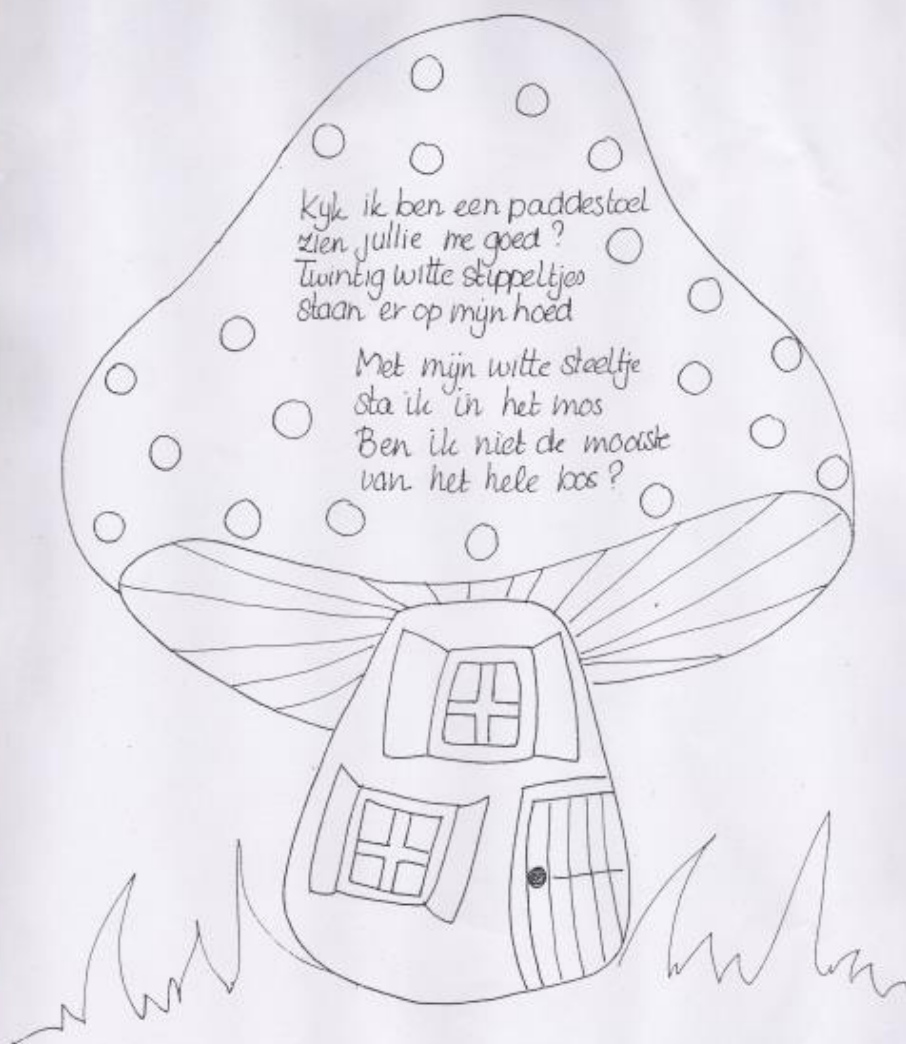 Kijk ik ben een paddestoel
zien jullie me goed?
Twintig witte stippeltjes
staan er op mijn hoed
Met mijn witte steeltje
sta ik in het mos
Ben ik niet de mooiste
van het hele bos?